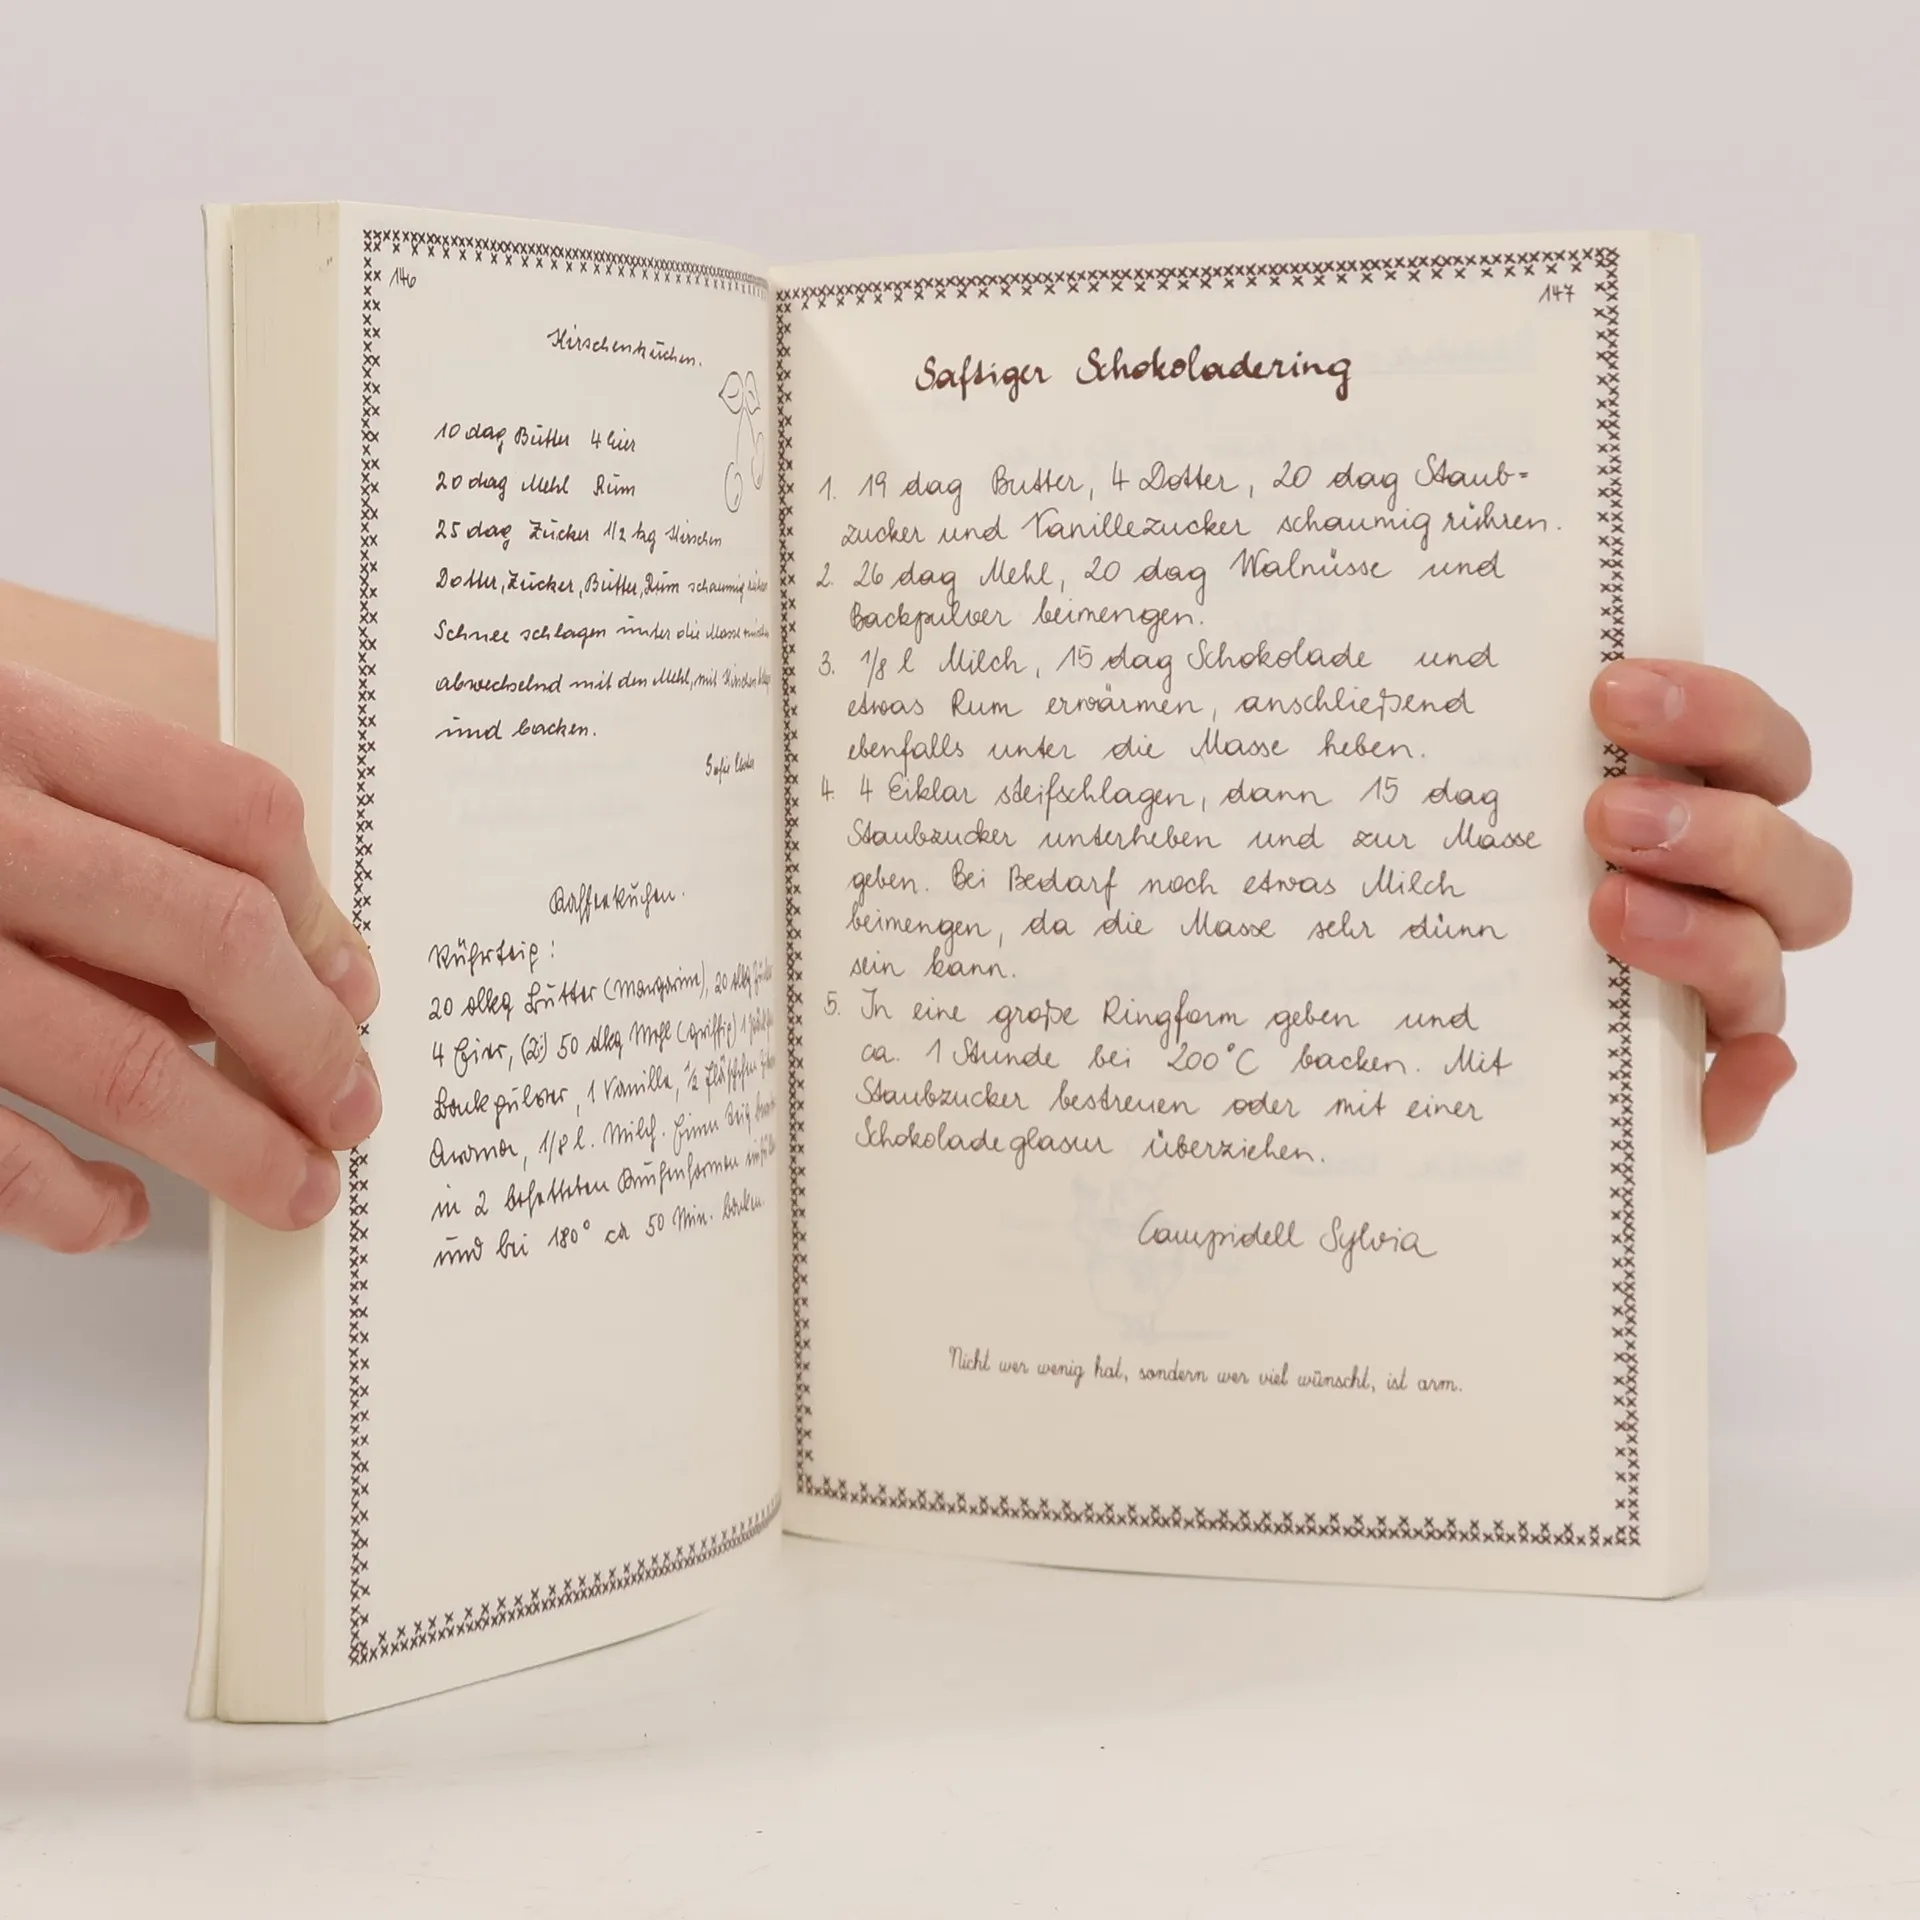 146
Kirschenkuchen.
10 dag Butter 4 Eier
20 dag Mehl Rum
25 dag Zucker 1/2 kg Kirschen
Dotter, Zucker, Butter, Rum schaumig
Schnee schlagen unter die Masse
abwechselnd mit den Mehl, mit Kirschen
und backen.
Sofie
Kaffeekuchen.
Rührteig:
20 dkg Butter (Margarine), 20 dkg
4 Eier, 50 dkg Mehl (griffig) 1
Backpulver, 1 Vanille, ½ Fläschchen
Aroma, 1/8 l. Milch. Einen Teig
in 2 befetteten Kuchenformen
und bei 180° ca 50 Min. backen.
147
Saftiger Schokoladering
1. 19 dag Butter, 4 Dotter, 20 dag Staub=
zucker und Vanillezucker schaumig rühren.
2. 26 dag Mehl, 20 dag Walnüsse und
Backpulver beimengen.
3. 1/8 l Milch, 15 dag Schokolade und
etwas Rum erwärmen, anschließend
ebenfalls unter die Masse heben.
4. 4 Eiklar steifschlagen, dann 15 dag
Staubzucker unterheben und zur Masse
geben. Bei Bedarf noch etwas Milch
beimengen, da die Masse sehr dünn
sein kann.
5. In eine große Ringform geben und
ca. 1 Stunde bei 200°C backen. Mit
Staubzucker bestreuen oder mit einer
Schokoladeglasur überziehen.
Campidell Sylvia
Nicht wer wenig hat, sondern wer viel wünscht, ist arm.